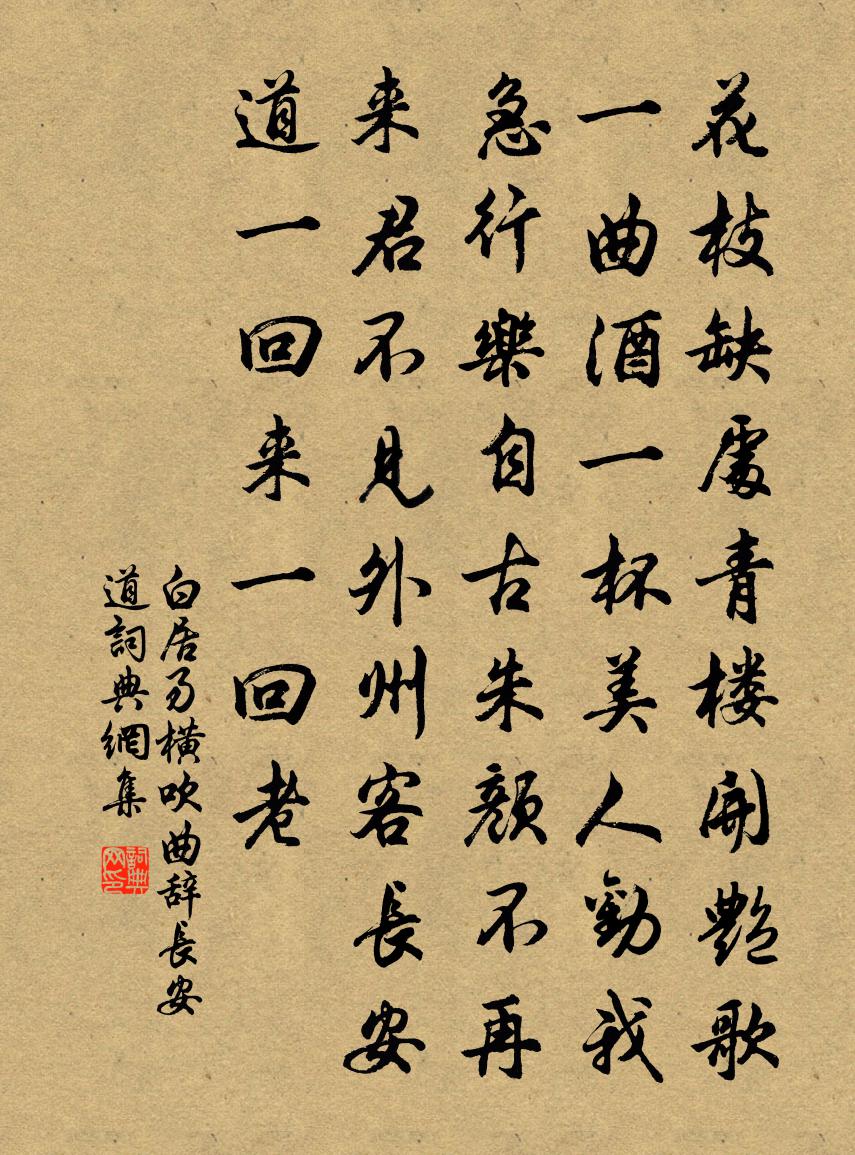 花枝缺處青楼開艷歌
一曲酒一杯美人勸我
急行樂自古朱顔不再
来君不見外州客長安
道一回来一回老
白居易横吹曲辞長安
道詞典網集
詞典
网印